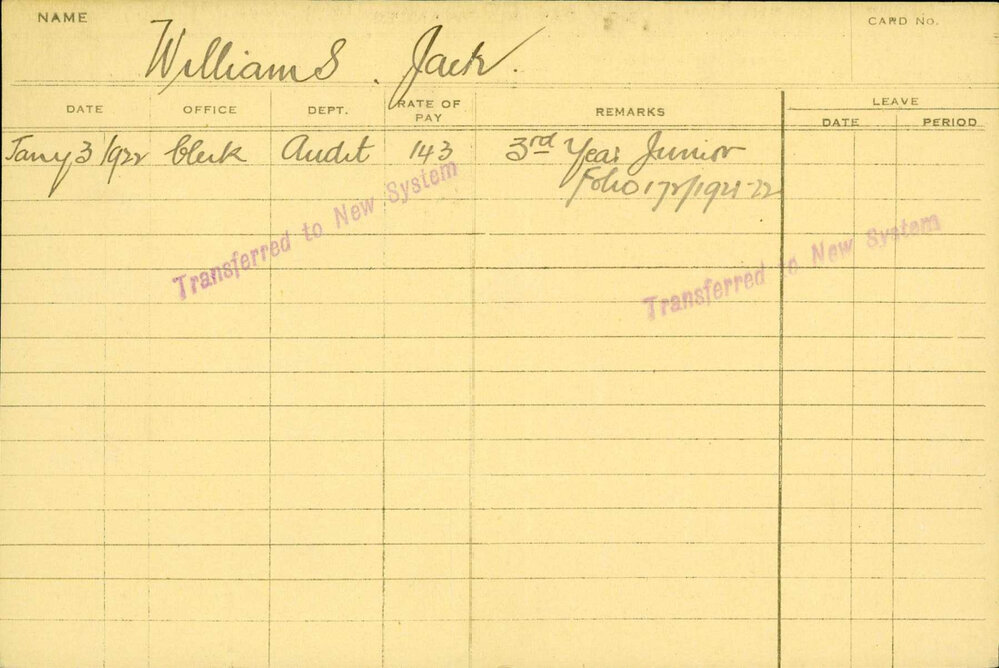 NAME
CARD No.
Williams. Jack.
DATE OFFICE DEPT. RATE OF PAY REMARKS LEAVE
DATE PERIOD
Jany 3/922 Clerk Audit 143 3rd Year Junior
Folio 172/1921-22
Transferred to New System
Transferred to New System